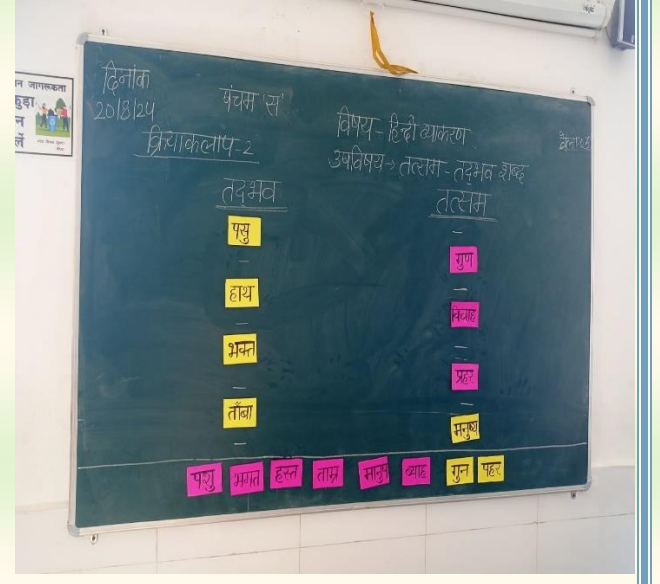 न जागरूकता
कुड़ा
न
लें
दिनांक
20/8/24
पंचम 'स'
क्रियाकलाप-2
विषय - हिन्दी व्याकरण
उपविषय → तत्सम - तद्भव शब्द
तद्भव
तत्सम
पसु
गुण
हाथ
विवाह
भक्त
प्रहर
ताँबा
मनुष्य
पशु भगत हस्त ताम्र मानुष ब्याह गुन पहर